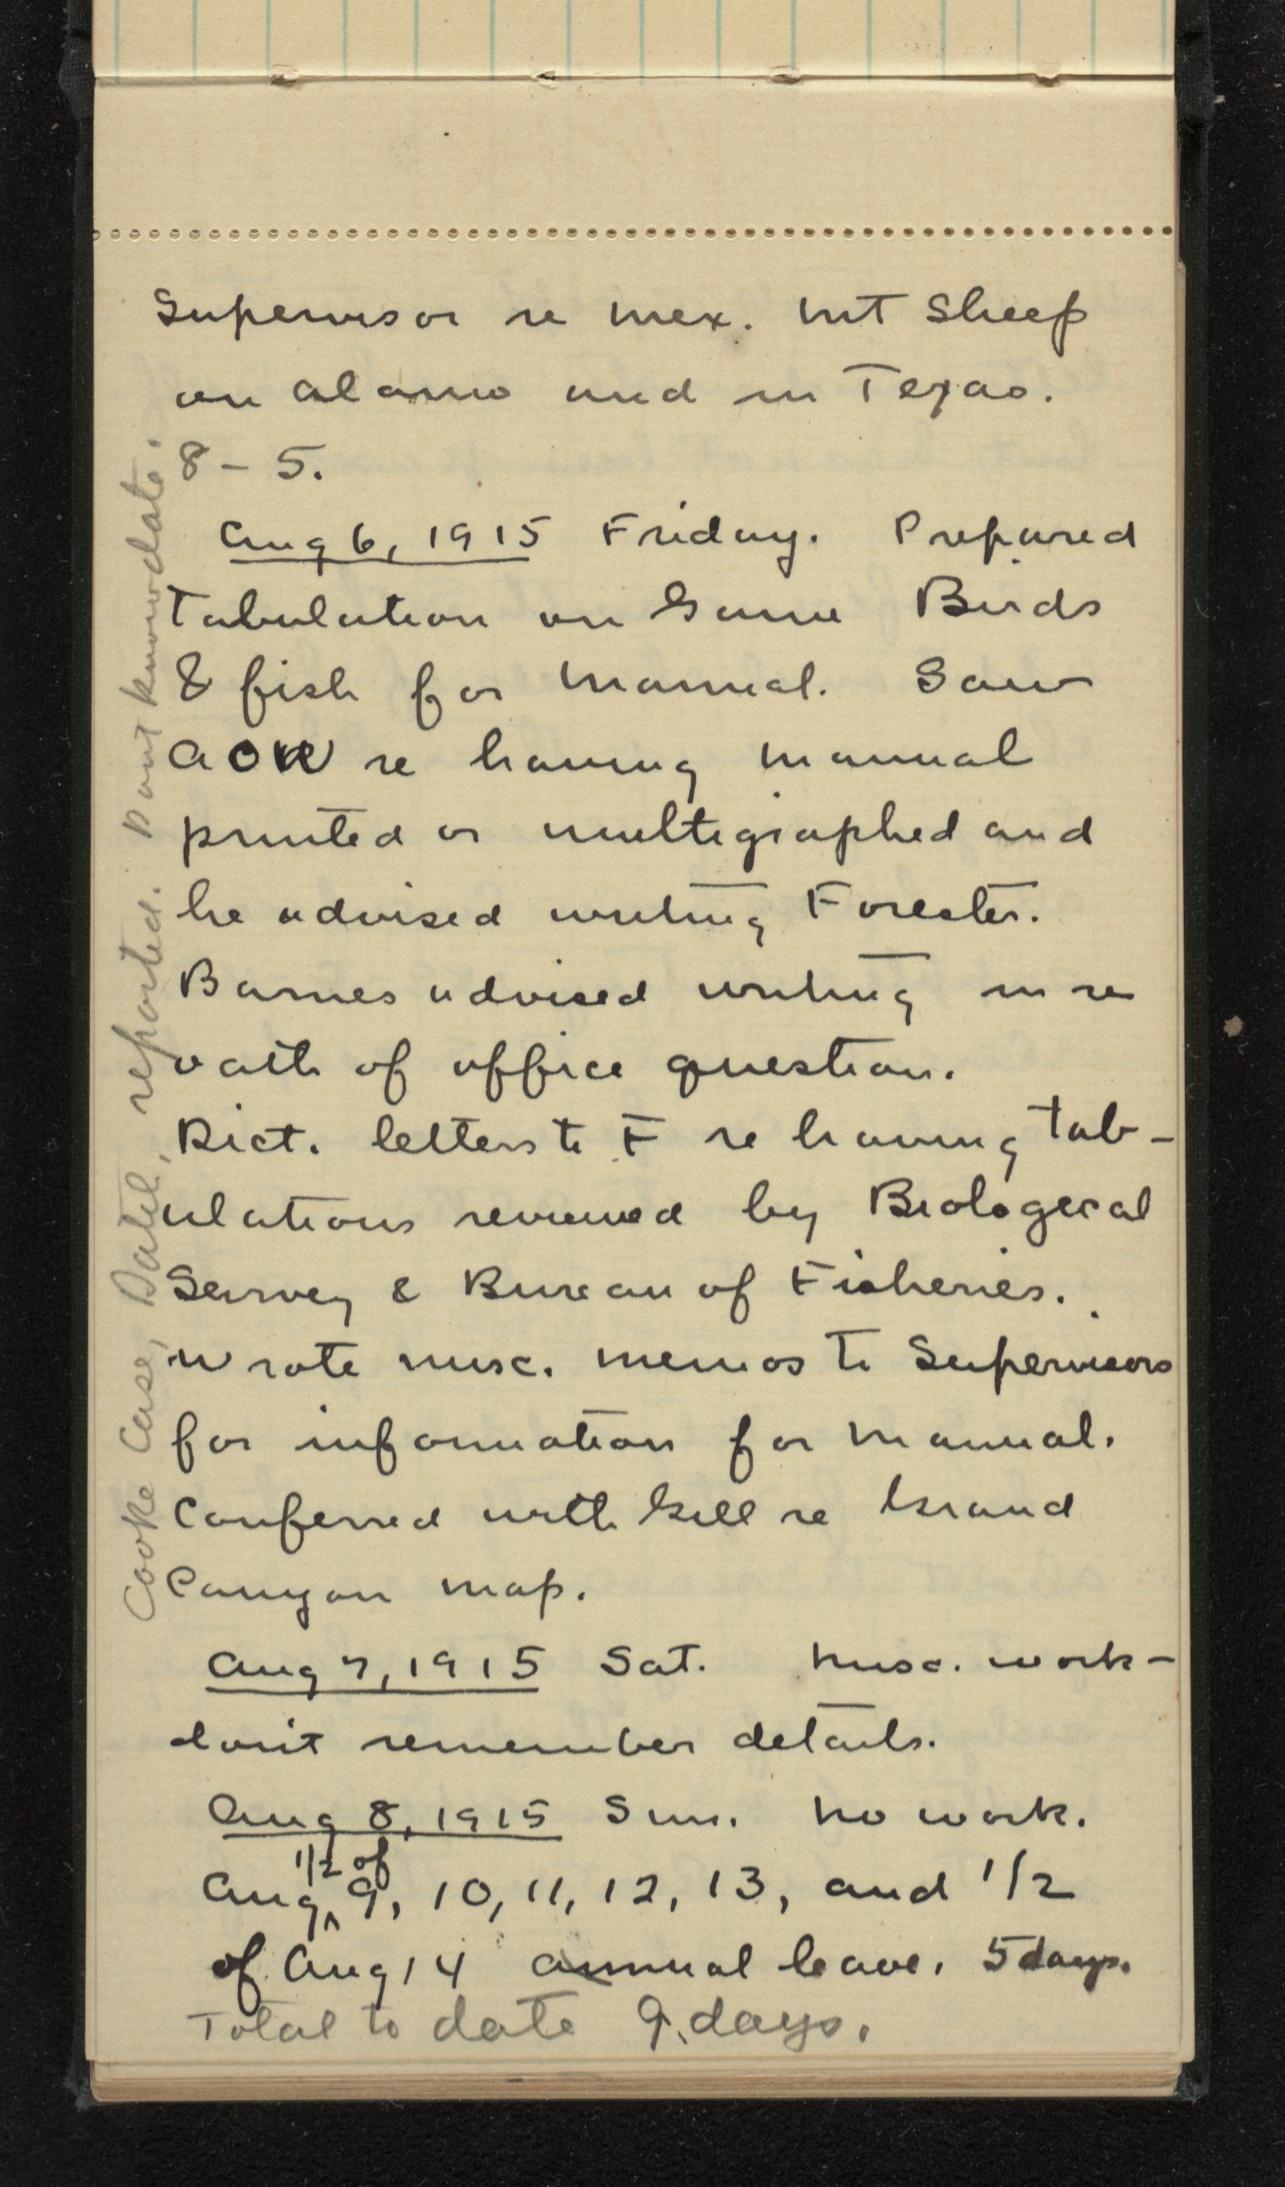 Supervisor re Mex. Mt Sheep
on Alamo and in Texas.
8 - 5.
Aug 6, 1915 Friday. Prepared
Tabulation on Game Birds
& fish for Manual. Saw
AOW re having manual
printed or multigraphed and
he advised writing Forester.
Barnes advised writing in re
oath of office question.
Dict. letters to F re having tab-
ulations reviewed by Biological
Survey & Bureau of Fisheries.
Wrote misc. memos to Supervisors
for information for Manual.
Conferred with Gill re Grand
Canyon map.
Aug 7, 1915 Sat. Misc. work -
don't remember details.
Aug 8, 1915 Sun. No work.
1/2 of
Aug ^ 9, 10, 11, 12, 13, and 1/2
of Aug 14 annual leave. 5 days.
Total to date 9 days.
Cooke Case, Datil, reported. Dont know date.